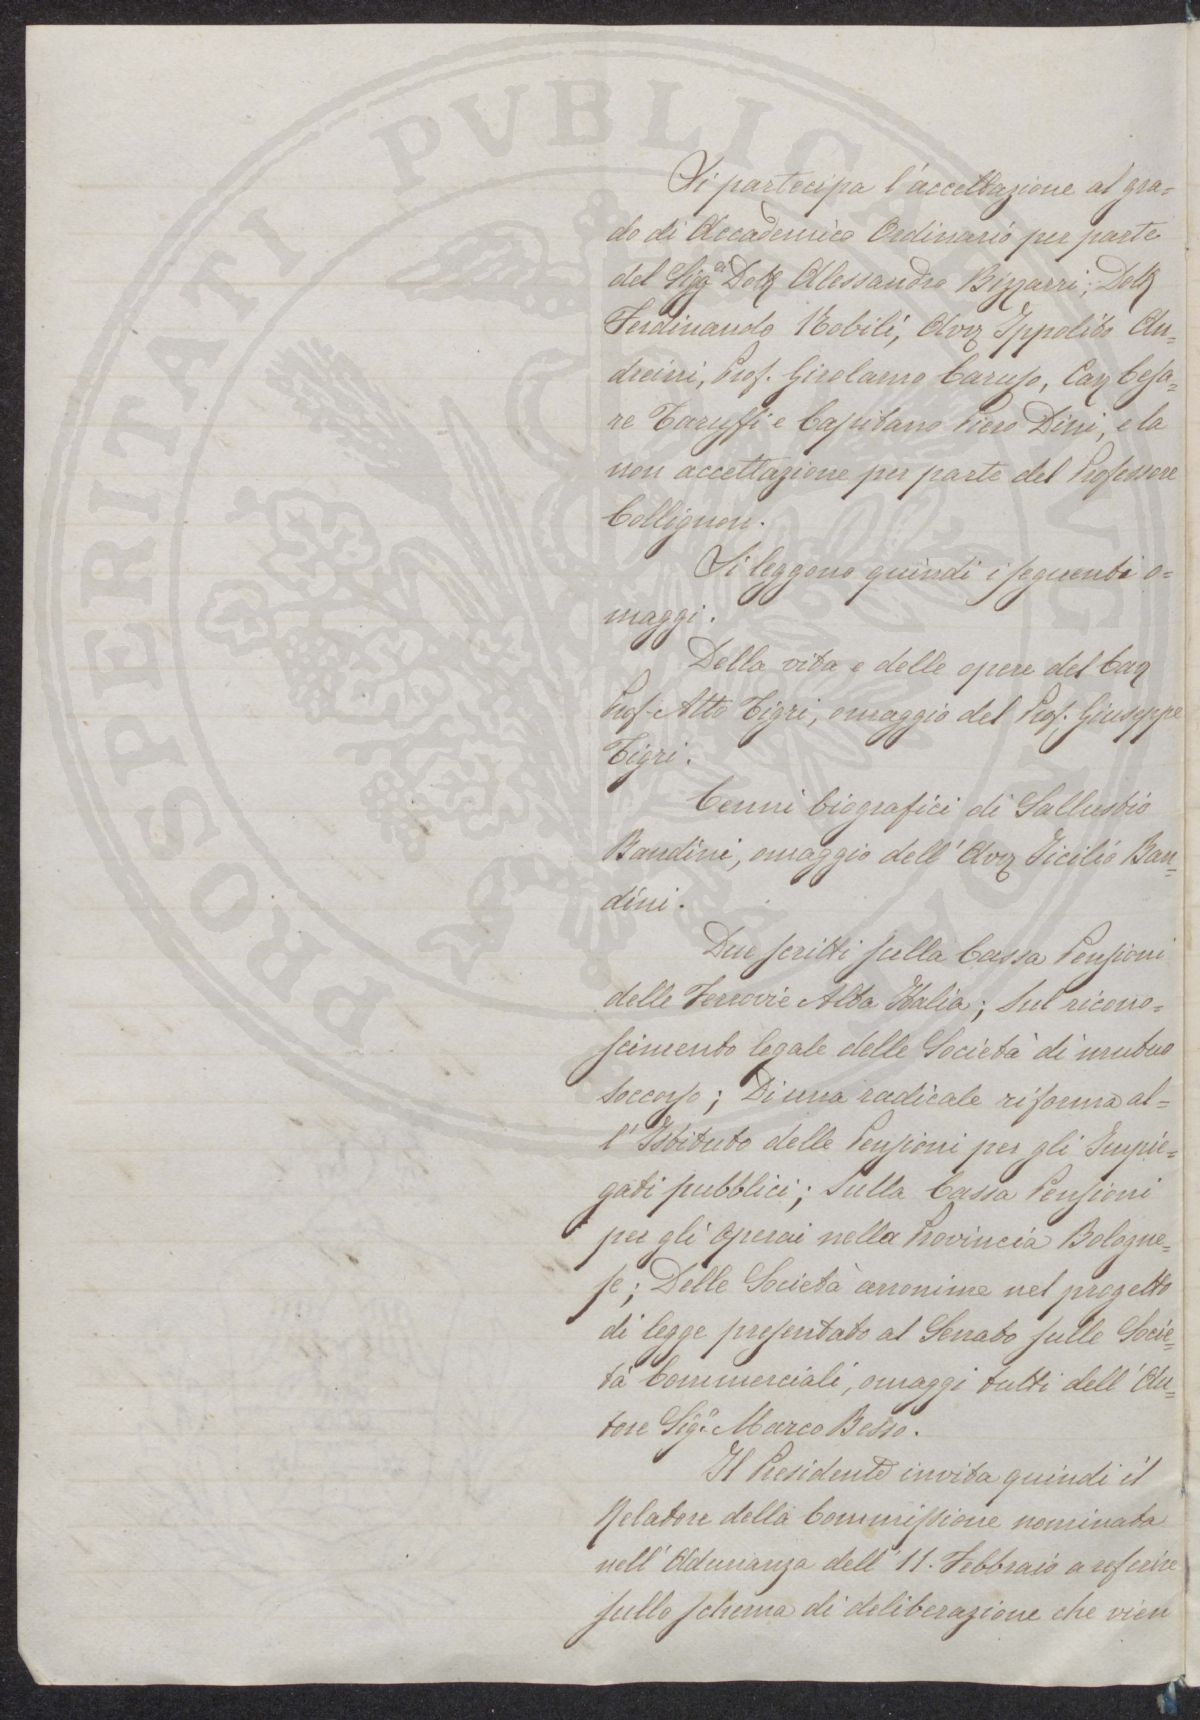 Si partecipa l'accettazione al gra=
do di Accademico Ordinario per parte
dei Sigg.ri Dott. Alessandro Bizzarri, Dott.
Ferdinando Nobili, Avv. Ippolito An=
dreini, Prof. Girolamo Caruso, Cav. Cesa=
re Taruffi e Capitano Piero Dini, e la
non accettazione per parte del Professore
Collignon.
Si leggono quindi i seguenti o=
maggi.
Della vita e delle opere del Cav.
Prof. Atto Tigri, omaggio del Prof. Giuseppe
Tigri.
Cenni biografici di Sallustio
Bandini, omaggio dell'Avv. Icilio Ban=
dini.
Due scritti sulla Cassa Pensioni
delle Ferrovie Alta Italia; Sul ricono=
scimento legale delle Società di mutuo
soccorso; Di una radicale riforma al=
l'Istituto delle Pensioni per gli Impie=
gati pubblici; Sulla Cassa Pensioni
per gli Operai nella Provincia Bologne=
se; Delle Società anonime nel progetto
di legge presentato al Senato sulle Socie=
tà Commerciali, omaggi tutti dell'Au=
tore Sig.o Marco Besso.
Il Presidente invita quindi il
Relatore della Commissione nominata
nell'Adunanza dell'11. Febbraio a referire
sullo schema di deliberazione che vien
PROSPERITATI PVBLICAE